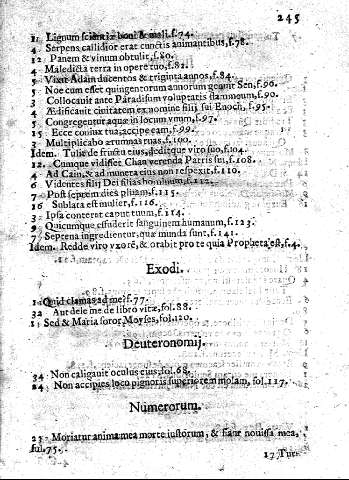 245
11 Lignum scientiæ boni & mali, f.74.
4 Serpens callidior erat cunctis animantibus, f.78.
12 Panem & vinum obtulit, f.80.
4 Maledicta terra in opere tuo, f.81.
5 Vixit Adam ducentos & triginta annos, f.84.
5 Noe cum esset quingentorum annorum genuit Sen, f.90.
3 Collocauit ante Paradisum voluptatis flammeum, f.90.
4 Ædificauit ciuitatem ex nomine filij sui Enoch, f.95.
5 Congregentur aquæ in locum vnum, f.97.
15 Ecce coniux tua, accipe eam, f.99.
3 Multiplicabo ærumnas tuas, f.100.
Idem. Tulit de fructu eius, deditque viro suo, f.104.
12. Cumque vidisset Chan verenda Patris sui, f.108.
4 Ad Cain, & ad munera eius non respexit, f.110.
6 Videntes filij Dei filias hominum, f.112.
7 Post septem dies pluam, f.115.
16 Sublata est mulier, f.116.
3 Ipsa conteret caput tuum, f.114.
9 Quicumque effuderit sanguinem humanum, f.123.
7 Septena ingredientur, quæ munda sunt, f.141.
Idem. Redde viro vxorē, & orabit pro te quia Propheta est, f.4.
Exodi.
Quid clamas ad me? f.77.
32 Aut dele me de libro vitæ, fol.88.
Sed & Maria soror Moyses, fol.120.
Deuteronomij.
34 Non caligauit oculus eius, fol.68.
24 Non accipies loco pignoris superiorem molam, fol.117.
Numerorum.
23 Moriatur anima mea morte iustorum, & fiant nouissa mea,
ful.75.
17 Tur-